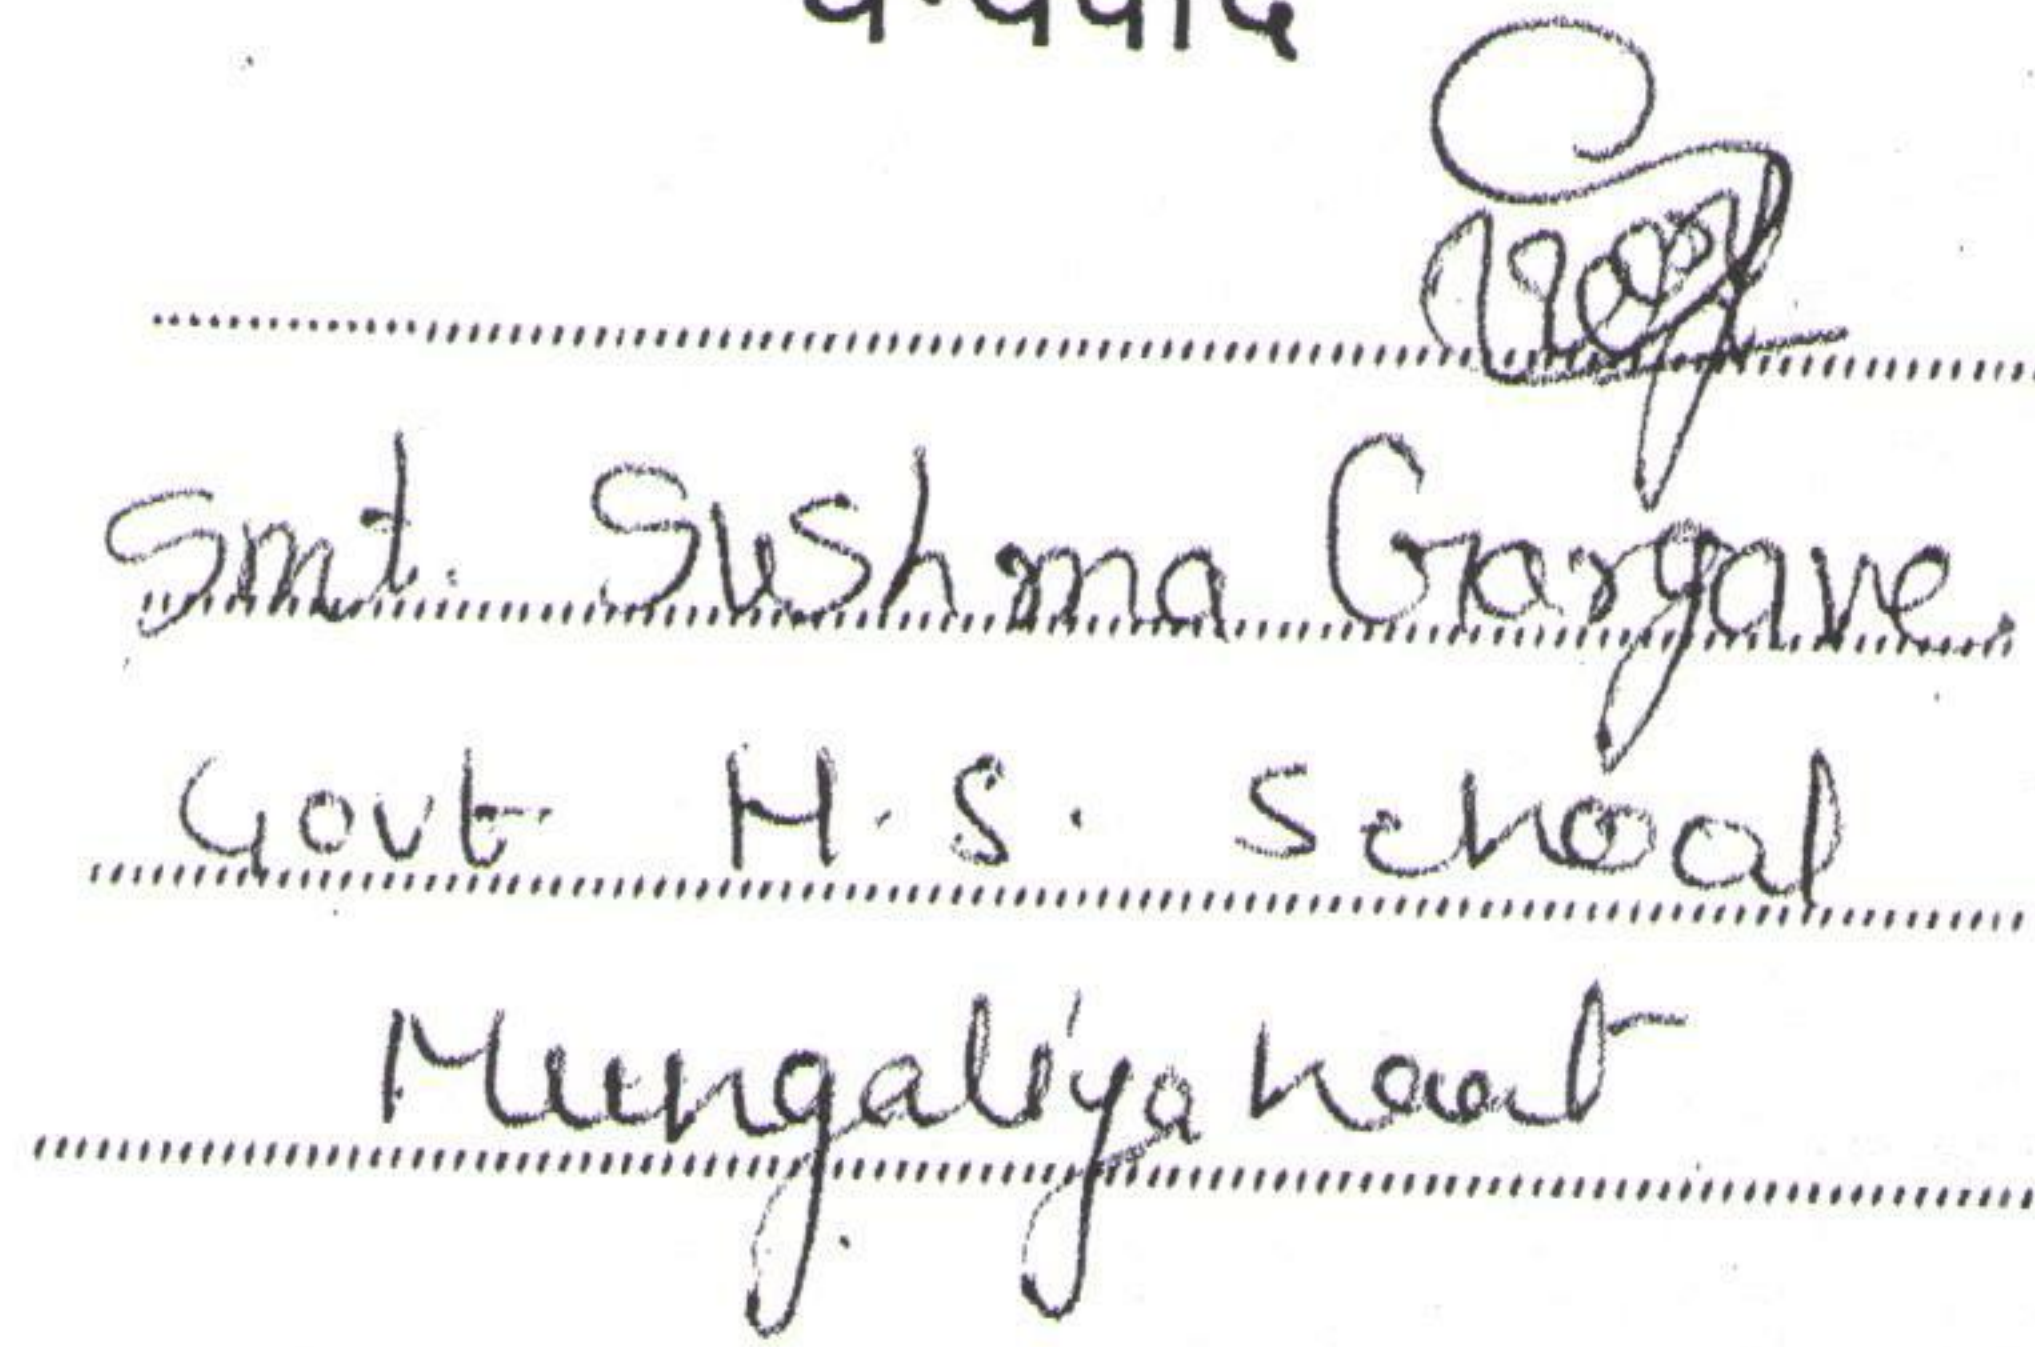 धन्यवाद
Smt. Sushma Gargave.
Govt. H.S. School
Mungaliya Kaat